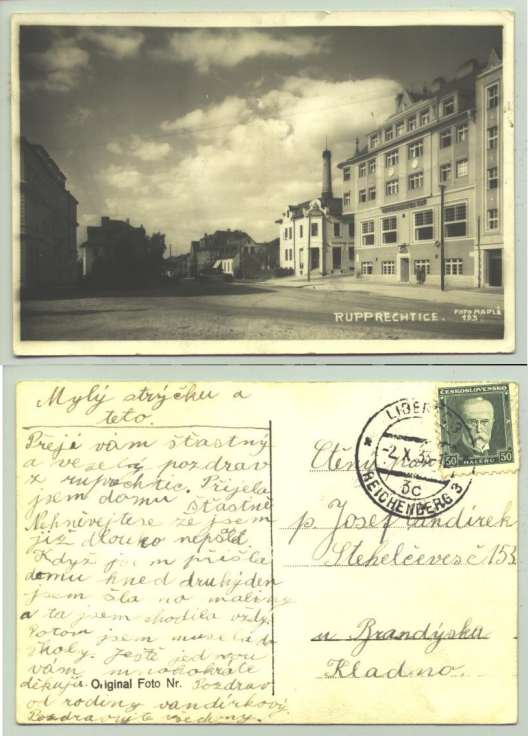 RUPPRECHTICE.
FOTO MAPLĚ
193
Mylý strýčku a
teto.
Přeji vám šťastný
a veselý pozdrav
z ruprechtic. Přijela
jsem domu šťastně
Nehněvejte že jsem
již dlouho nepsle
Když jsem přišla
domu hned druhý den
jsem šla na maliny
a ta jsem chodila vždy.
Potom jsem musela do
školy. Ještě jednou
vám mockráte
děkuji. Original Foto Nr. Pozdrav
od rodiny vandírkový
Pozdravujte všechny.
ČESKOSLOVENSKO
50 HALÉŘŮ 50
LIBEREC 3
-2.X.35
3c
REICHENBERG 3
Ctěný pan
p. Josef Vandírek
Stehelčeveš č 153
u Brandýsku
Kladno.